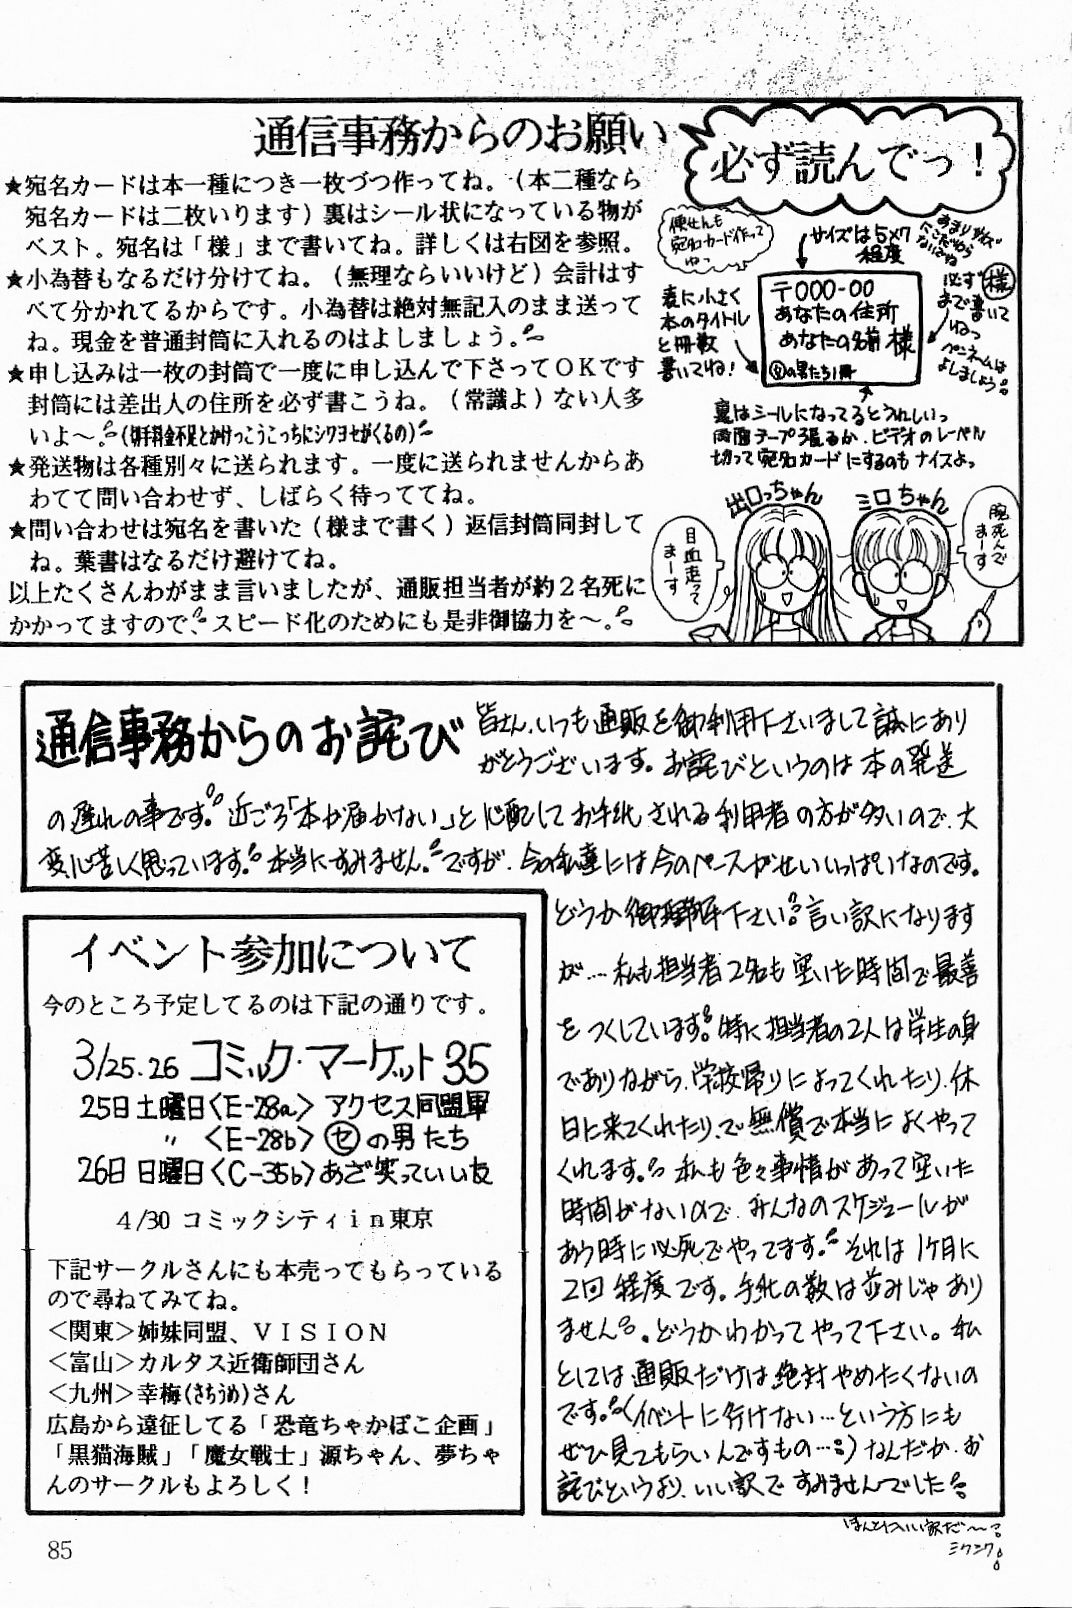 通信事務からのお願い
必ず読んでっ！
★宛名カードは本一種につき一枚づつ作ってね。（本二種なら
宛名カードは二枚いります）裏はシール状になっている物が
ベスト。宛名は「様」まで書いてね。詳しくは右図を参照。
★小為替もなるだけ分けてね。（無理ならいいけど）会計はす
べて分かれてるからです。小為替は絶対無記入のまま送って
ね。現金を普通封筒に入れるのはよしましょう。
★申し込みは一枚の封筒で一度に申し込んで下さってＯＫです
封筒には差出人の住所を必ず書こうね。（常識よ）ない人多
いよ～。（切手料金不足とかけっこうこっちにシワヨセがくるの）
★発送物は各種別々に送られます。一度に送られませんからあ
わてて問い合わせず、しばらく待っててね。
★問い合わせは宛名を書いた（様まで書く）返信封筒同封して
ね。葉書はなるだけ避けてね。
以上たくさんわがまま言いましたが、通販担当者が約２名死に
かかってますので、スピード化のためにも是非御協力を～。
便せんも
宛名カード作って
ねっ
サイズは5×7
程度
あまりサイズ
にこだわら
ないでね
必ず様
まで書いて
ねっ
ペンネームは
よしましょう
表に小さく
本のタイトル
と冊数
書いてね！
〒000-00
あなたの住所
あなたの名前 様
㋝の男たち1冊
裏はシールになってるとうれしいっ
両面テープ張るか、ビデオのレーベル
切って宛名カードにするのもナイスよっ
出口っちゃん
ミロちゃん
目血走って
まーす
腕死んで
まーす
通信事務からのお詫び
皆さん、いつも通販を御利用下さいまして誠にあり
がとうございます。お詫びというのは本の発送
の遅れの事です。近ごろ「本が届かない」と心配してお手紙される利用者の方が多いので、大
変心苦しく思っています。本当にすみません。ですが、今の私達には今のペースがせいいっぱいなのです。
どうか御理解下さい。言い訳になります
が…私も担当者2名も空いた時間で最善
をつくしています。特に担当者の2人は学生の身
でありながら、学校帰りによってくれたり、休
日に来てくれたり、で無償で本当によくやって
くれます。私も色々事情があって空いた
時間がないので、みんなのスケジュールが
あう時に必死でやってます。それは1ヶ月に
2回程度です。手紙の数は並みじゃあり
ません。どうかわかってやって下さい。私
としては通販だけは絶対やめたくないの
です。（イベントに行けない…という方にも
ぜひ見てもらいたいんですもの…）なんだか、お
詫びというより、いい訳ですみませんでした。
ほんとにいい訳だ～
ミクニク
イベント参加について
今のところ予定してるのは下記の通りです。
3/25.26 コミック・マーケット35
25日土曜日〈E-28a〉アクセス同盟軍
〃 〈E-28b〉㋝の男たち
26日日曜日〈C-35b〉あざ笑っていい友
４/30 コミックシティｉｎ東京
下記サークルさんにも本売ってもらっている
ので尋ねてみてね。
＜関東＞姉妹同盟、ＶＩＳＩＯＮ
＜富山＞カルタス近衛師団さん
＜九州＞幸梅（さちうめ）さん
広島から遠征してる「恐竜ちゃかぽこ企画」
「黒猫海賊」「魔女戦士」源ちゃん、夢ちゃ
んのサークルもよろしく！
85